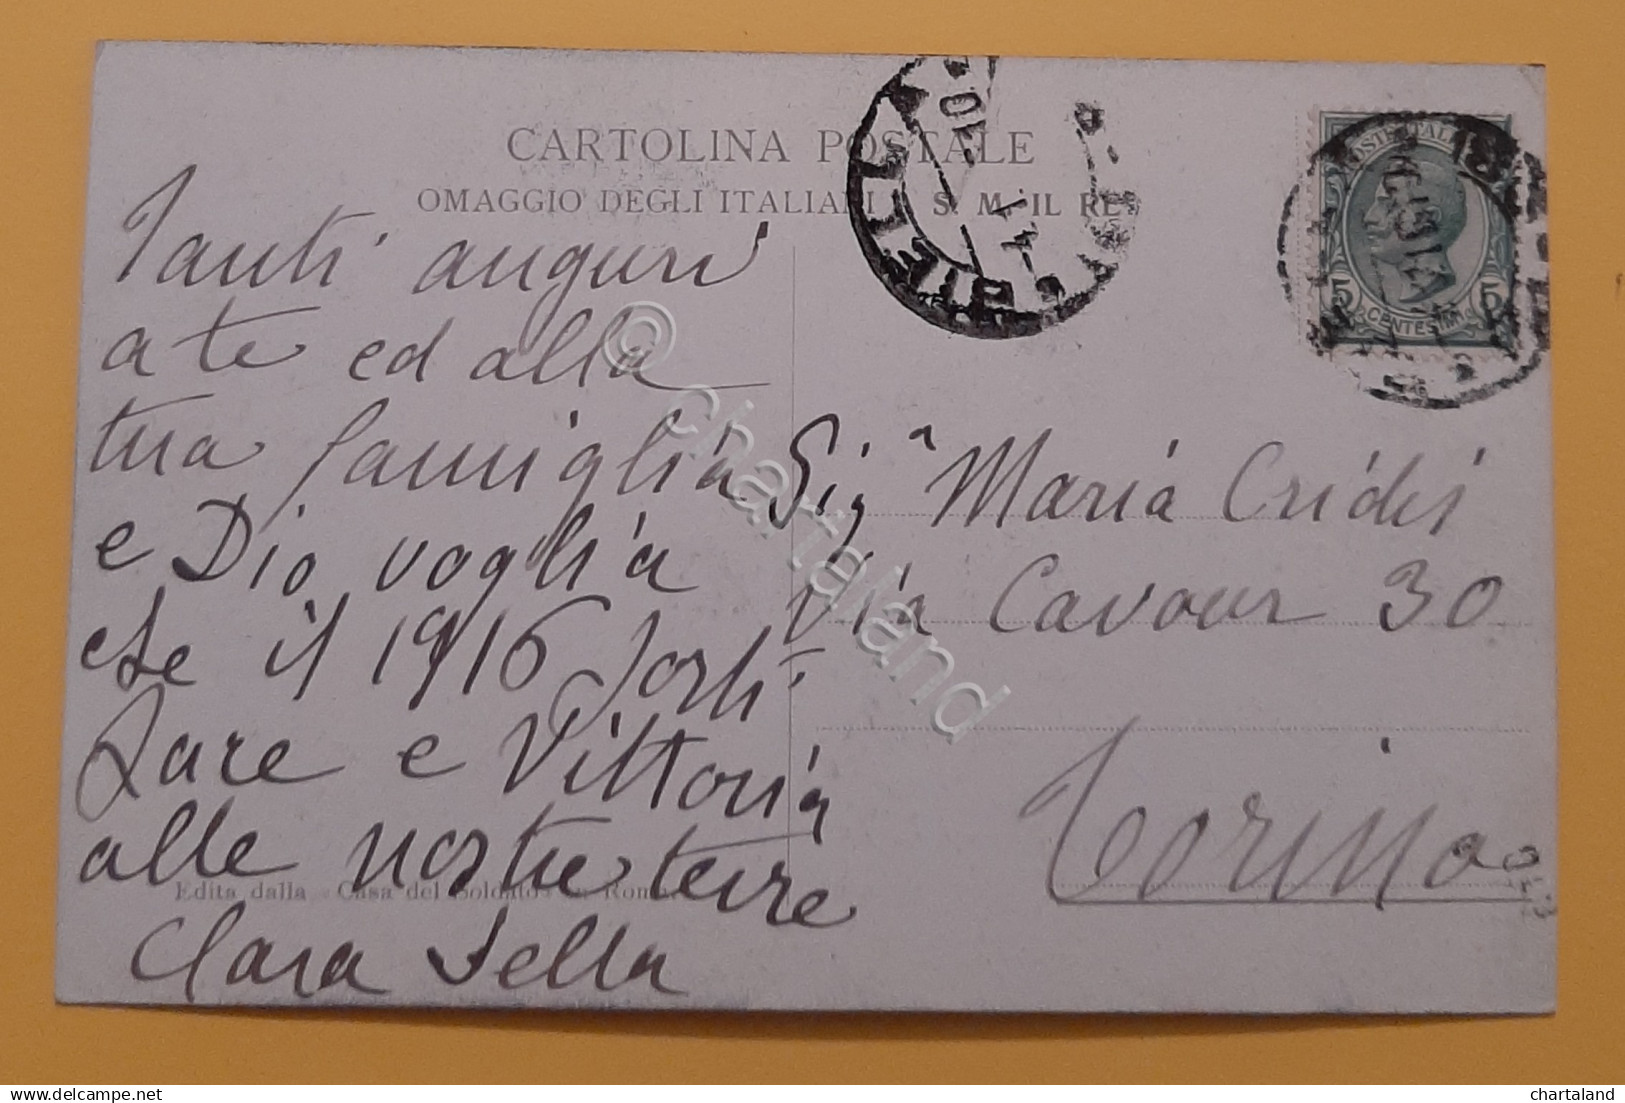 CARTOLINA POSTALE
OMAGGIO DEGLI ITALIANI A S. M. IL RE
Tanti auguri
a te ed alla
tua famiglia
e Dio voglia
che il 1916 porti
Pace e Vittoria
alle nostre terre
Clara Sella
Edita dalla «Casa del Soldato» Roma
Sigª Maria Cridis
Via Cavour 30
Torino
POSTE ITALIANE
5 5
CENTESIMI
BIELLA
© chartaland
chartaland